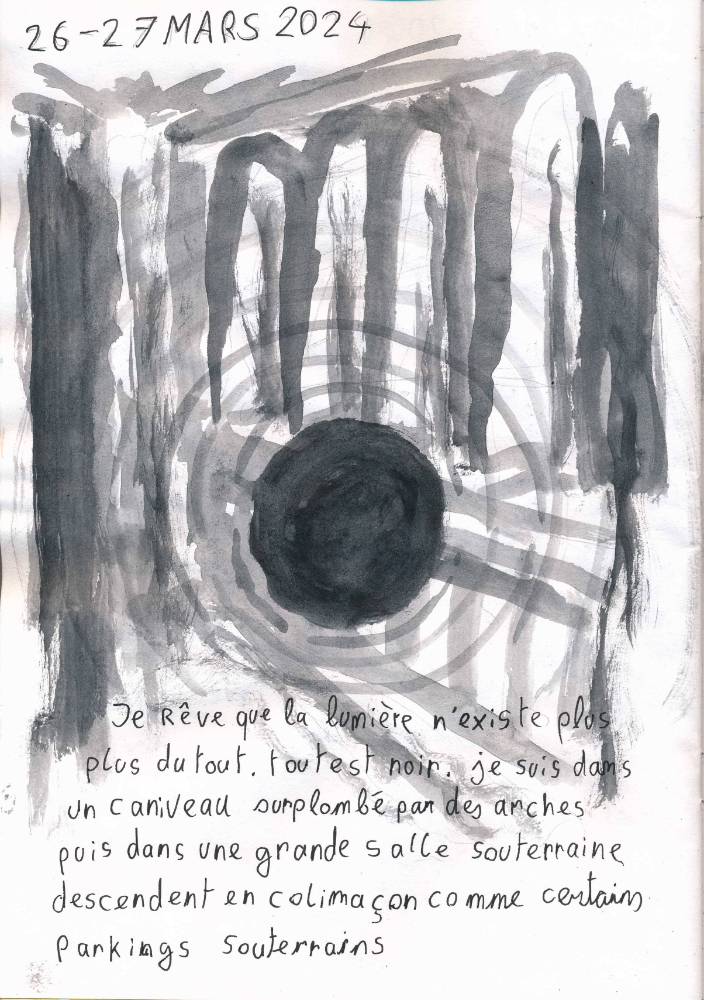 26-27 MARS 2024
Je Rêve que la lumière n'existe plus
plus du tout. tout est noir. je suis dans
un caniveau surplombé par des arches
puis dans une grande salle souterraine
descendent en colimaçon comme certains
parkings souterrains